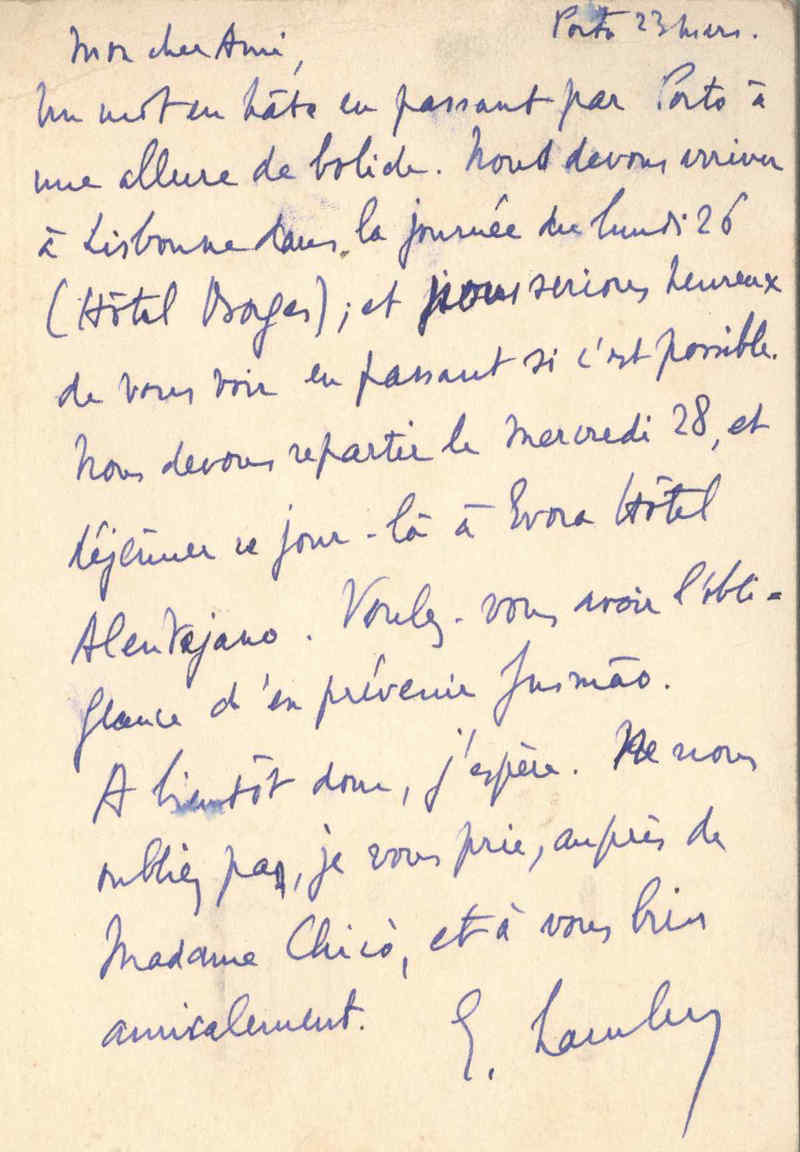 Porto 23 mars.
Mon cher Ami,
Un mot en hâte en passant par Porto à
une allure de bolide. Nous devons arriver
à Lisbonne dans la journée du lundi 26
(Hôtel Borges) ; et nous serions heureux
de vous voir en passant si c'est possible.
Nous devons repartir le mercredi 28, et
déjeûner ce jour-là à Evora Hôtel
Alentejano. Voulez-vous avoir l'obli-
geance d'en prévenir Gusmão.
A bientôt donc, j'espère. Ne nous
oubliez pas, je vous prie, auprès de
Madame Chicò, et à vous bien
amicalement.
E. Lambert